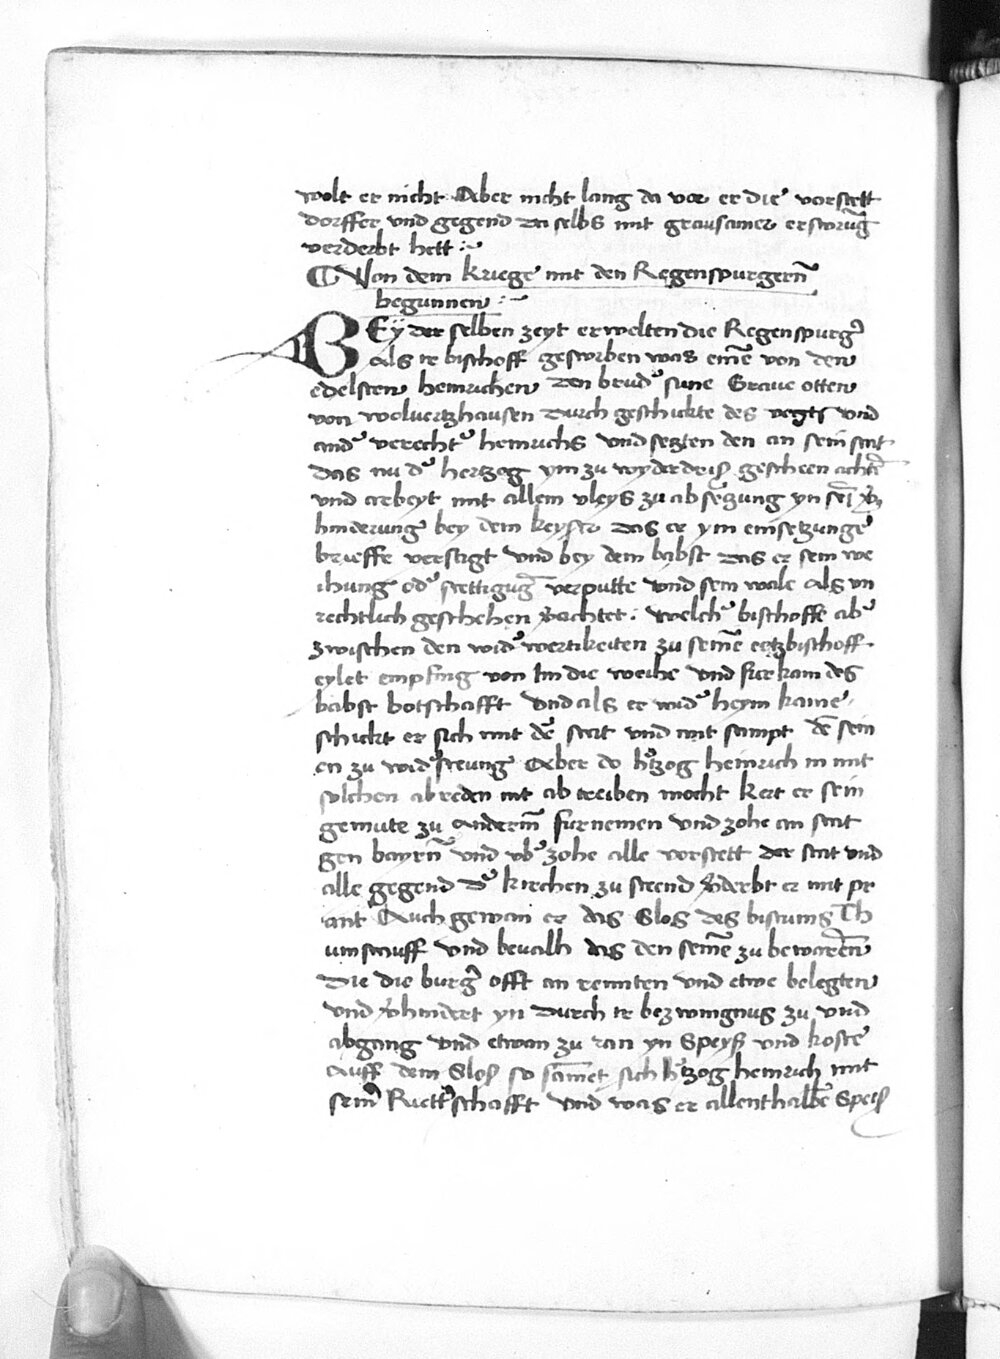 wolt er nicht Aber nicht lang da vor er die vorstett
dorffer vnd gegend da selbs mit grausamer erstorūg
verderbt hett :~
¶ Von dem kriege mit den Regenspurgern̄
begunnen :~
BEÿ der selben zeyt erwelten die Regenspurgˀ
als ir bischoff gestorben was eine᷑ von den
edelsten heinrichen den brudˀ sune Graue otten
von woluertzhausen durch geschickte des vogts vnd
andˀ verechtˀ heinrichs vnd setzten den an sein stat
das nu dˀ hertzog ym zu wyderdriß gescheen achtˀ
vnd arbeyt mit allem vleys zu absetzung yn sei᷑
hinderung bey dem keyser das er ym einsetzunge
brieffe versagt vnd bey dem babst das er sein we
ihung odˀ stettigug᷑ verputte vnd sein wale als vn
rechtlich geschehen v̉achtet : welchˀ bischoffe abˀ
zwischen den widˀwertikeiten zu seine᷑ ertzbischoff
eylet empfing von Im die weihe vnd furkam des
babst botschafft vnd als er widˀ heym kame
schickt er sich mit de᷑ stat vnd mit sampt de᷑ sein
en zu widˀsteung Aber do hˀtzog heinrich in mit
solchen abreden nit ab treiben mocht kert er sein
gemute zu anderm̄ furnemen vnd zohe an stat
gen bayrn̄ vnd vbˀzohe alle vorstett der stat vnd
alle gegend dˀ kirchen zu steend v̉derbt er mit pr
ant Auch gewan er das Slos des bistums Th
umstauff vnd beualh das den seine᷑ zu bewaren̄
Die die burgˀ offt an rennten vnd etwe belegten
vnd v̉hindert yn durch ir bezwingnus zu vnd
abgang vnd etwan zu ran yn Speyß vnd koste
Auff dem Sloß so samet᷑ sich hˀtzog heinrich mit
seinˀ Ruettˀschafft vnd was er allenthalbe᷑ Speiß